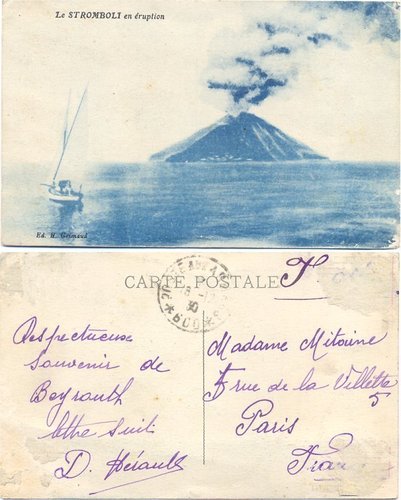 Le STROMBOLI en éruption
Ed. H. Grimaud
CARTE POSTALE
Respectueux
Souvenir de
Beyrouth
lettre suit
D. Hérault
Madame Mitoire
5 rue de la Villette
5
Paris